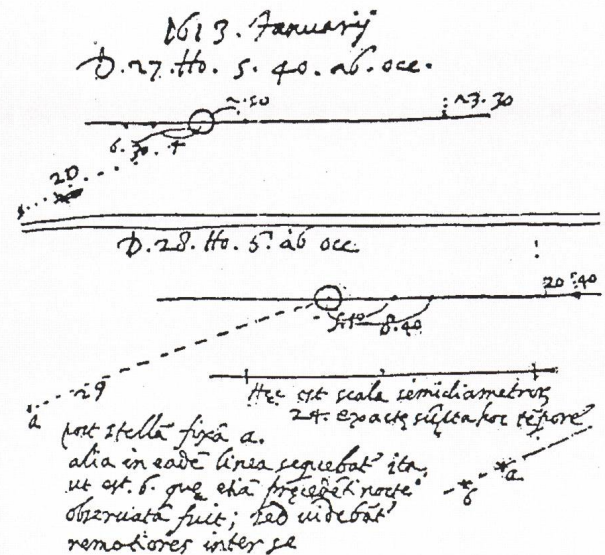 1613. Januarij
D. 27. Ho. 5. 40. ab. occ.
6. 30. 4
20
D. 28. Ho. 5. ab occ
5.10 8.40
20 40
29
a
Hęc est scala semidiametrorũ
24. exactę sũpta hoc tẽpore
post stellã fixã a.
alia in eadẽ linea sequebat' ita,
ut est. b. quę etiã pręcedẽti nocte
observata fuit; sed videbãt'
remotiores inter se
b a